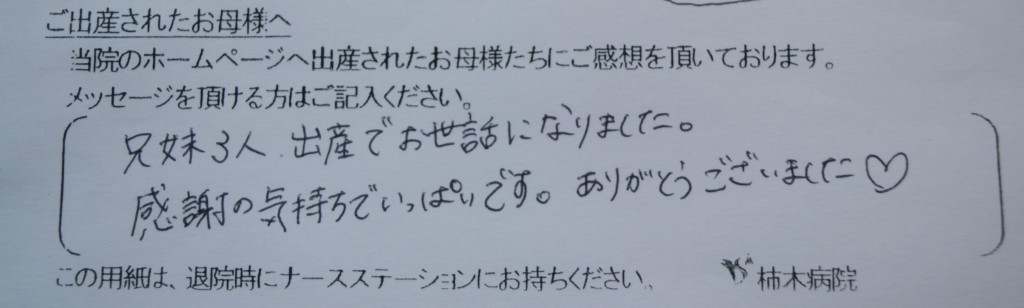 ご出産されたお母様へ
当院のホームページへ出産されたお母様たちにご感想を頂いております。
メッセージを頂ける方はご記入ください。
兄妹3人、出産でお世話になりました。
感謝の気持ちでいっぱいです。ありがとうございました♡
この用紙は、退院時にナースステーションにお持ちください。
柿木病院